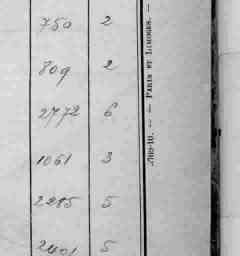 750 2
809 2
2772 6
1061 3
2285 5
2401 5
.709-10. — — PARIS ET LIMOGES. —